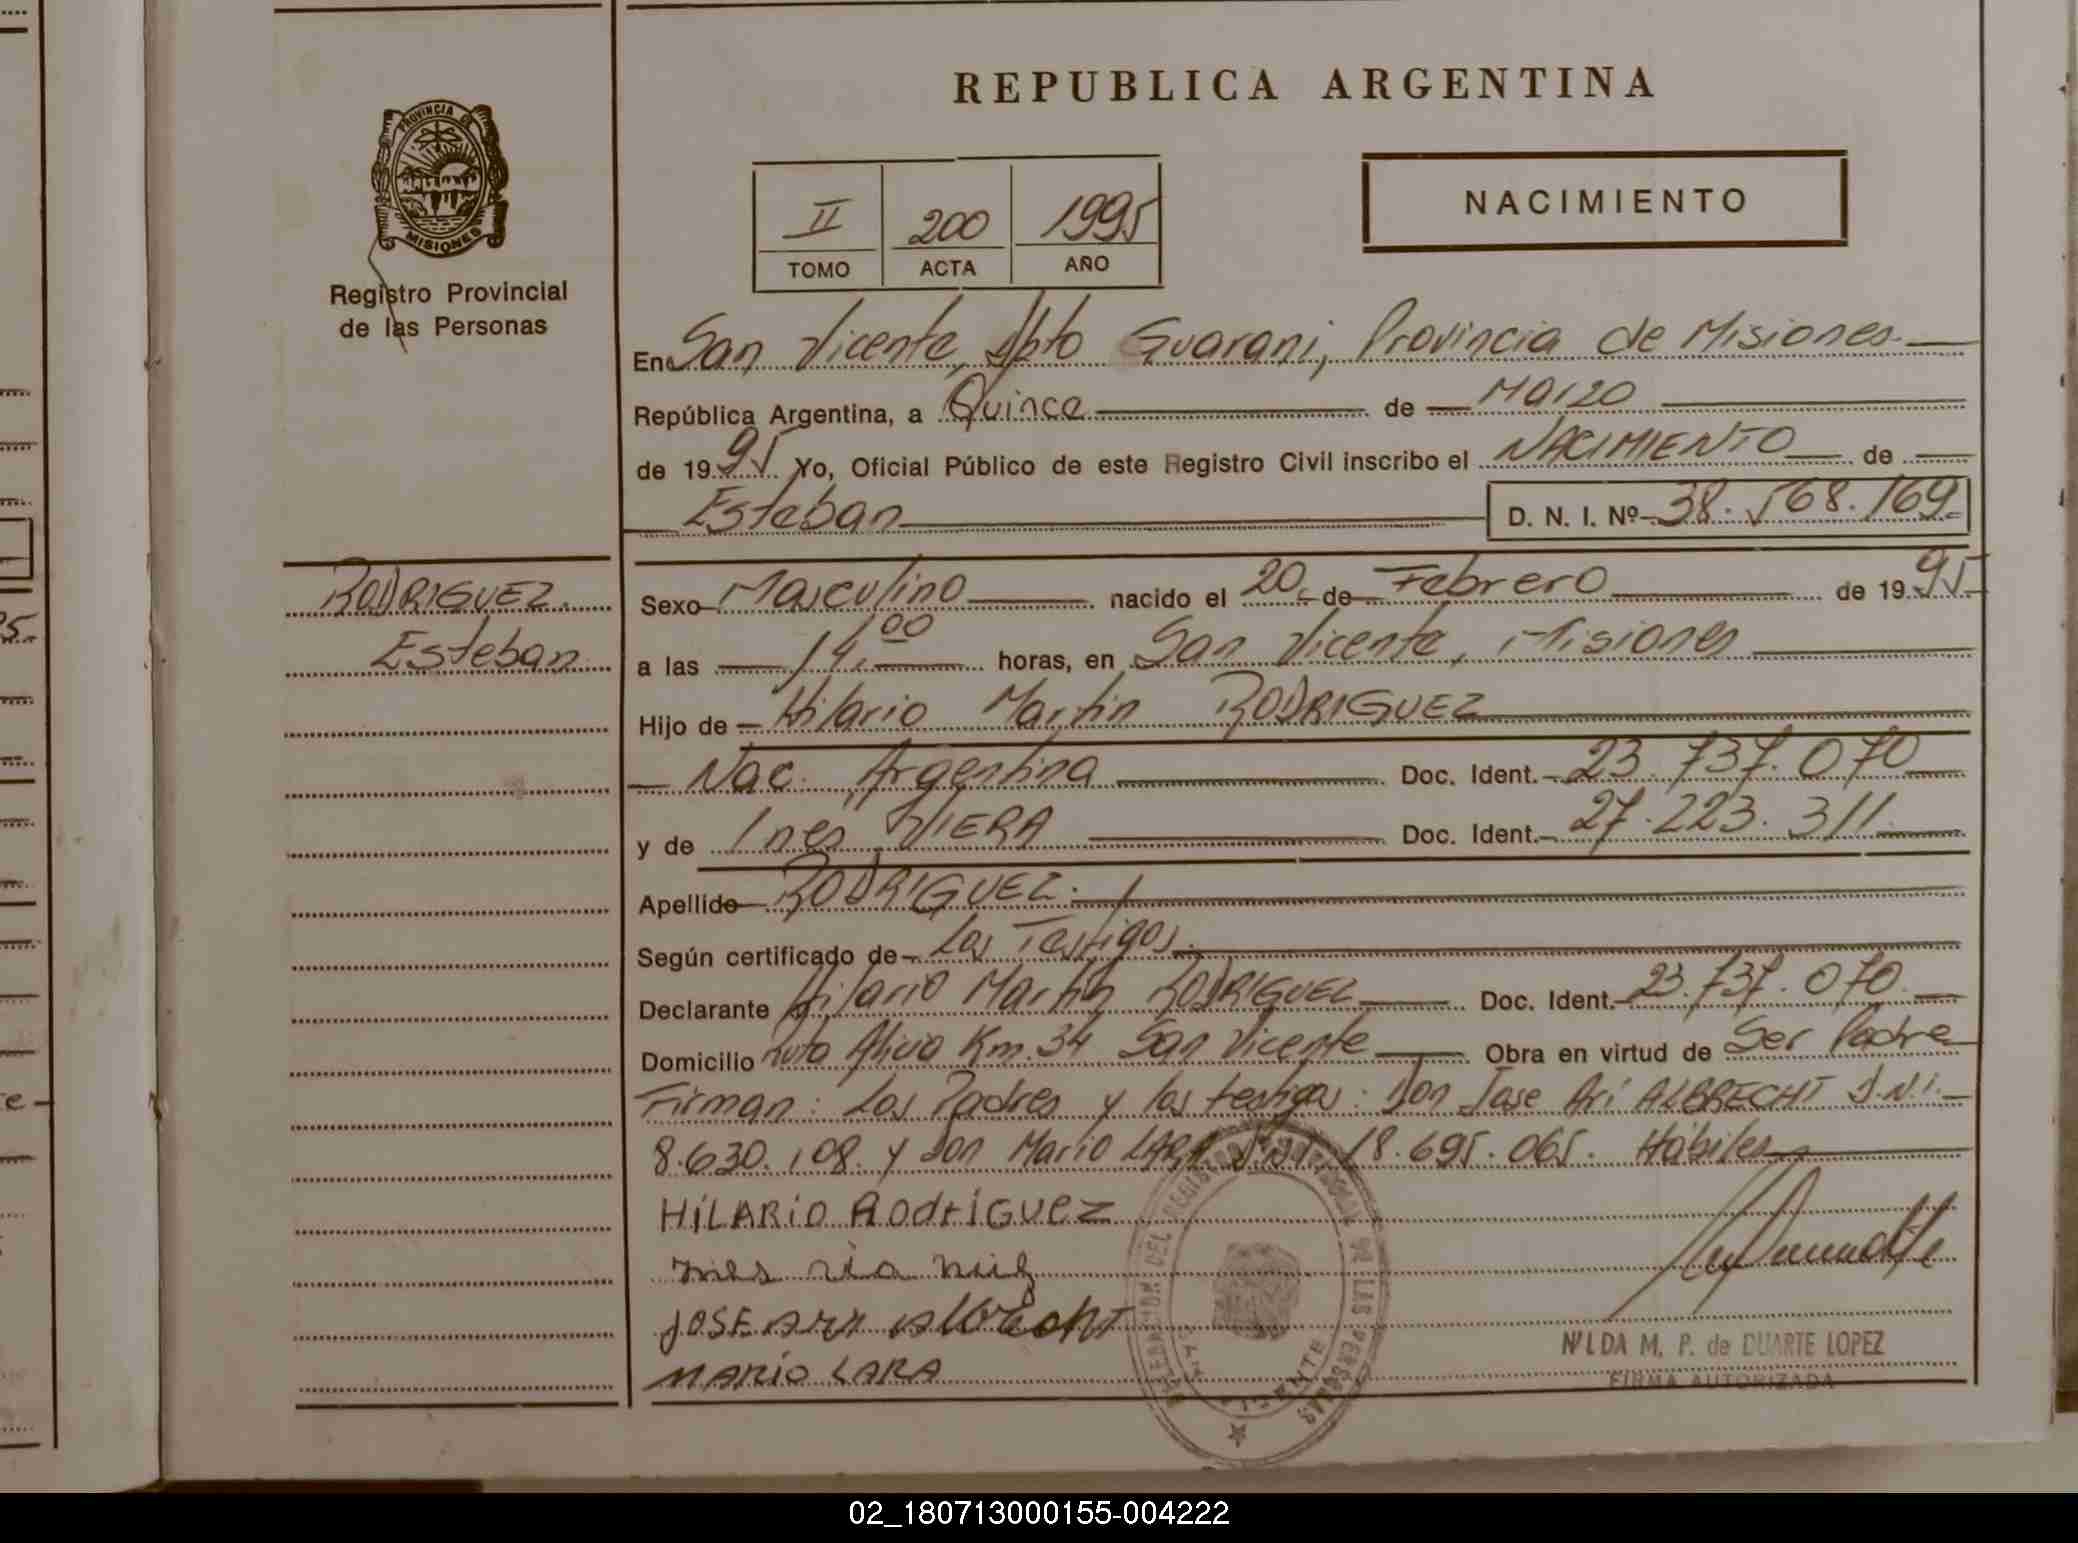 REPUBLICA ARGENTINA
PROVINCIA DE
MISIONES
Registro Provincial
de las Personas
II 200 1995
TOMO ACTA AÑO
NACIMIENTO
En San Vicente, Dpto Guarani, Provincia de Misiones.
República Argentina, a Quince de Marzo
de 1995 Yo, Oficial Público de este Registro Civil inscribo el NACIMIENTO de
Esteban D. N. I. Nº 38.568.169
RODRIGUEZ.
Esteban
Sexo Masculino nacido el 20 de Febrero de 1995
a las 14,00 horas, en San Vicente, Misiones
Hijo de Hilario Martin RODRIGUEZ
Nac. Argentina Doc. Ident. 23.737.070
y de Ines VIERA Doc. Ident. 27.223.311
Apellido RODRIGUEZ.
Según certificado de Los Testigos.
Declarante Hilario Martin RODRIGUEZ Doc. Ident. 23.737.070.
Domicilio Ruta Alicia Km.34 San Vicente Obra en virtud de Ser Padre
Firman: Los Padres y los testigos: Don Jose Ari ALBRECHT D.N.I.
8.630.108. y Don Mario LARA D.N.I. 18.695.065. Hábiles
HiLARiO RodríGuez
JOSE ARY ALBRECHT
MARIO LARA
DEL REGISTRO PROVINCIAL DE LAS PERSONAS
VICENTE
NILDA M. P. de DUARTE LOPEZ
FIRMA AUTORIZADA
02_180713000155-004222